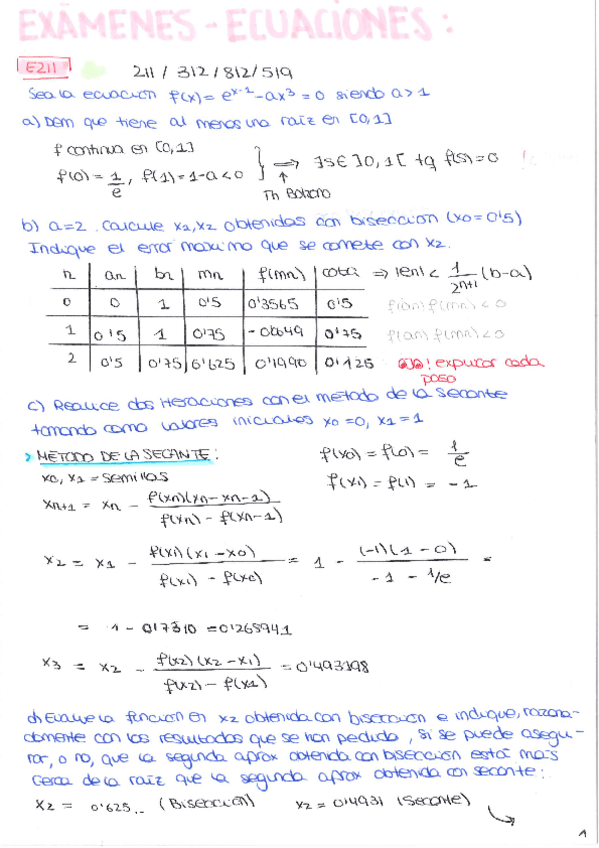 EXÁMENES - ECUACIONES:
E211
211 / 312 / 812 / 519
Sea la ecuación f(x) = e^x-1 - ax³ = 0 siendo a > 1
a) Dem que tiene al menos una raíz en [0,1]
f continua en [0,1]
f(0) = 1/e , f(1) = 1-a < 0 } ⟹ ∃s∈]0,1[ tq f(s)=0
Th Bolzano
b) a=2. Calcule x1, x2 obtenidas con bisección (x0=0'5)
Indique el error máximo que se comete con x2.
n | an | bn | mn | f(mn) | cota ⇒ |en| < 1/2^n+1 (b-a)
0 | 0 | 1 | 0'5 | 0'3565 | 0'5 f(an) f(mn) < 0
1 | 0'5 | 1 | 0'75 | -0'0649 | 0'75 f(an) f(mn) < 0
2 | 0'5 | 0'75 | 0'625 | 0'1990 | 0'125 ojo! explicar cada
paso
c) Realice dos iteraciones con el método de la secante
tomando como valores iniciales x0 = 0, x1 = 1
> MÉTODO DE LA SECANTE: f(x0) = f(0) = 1/e
x0, x1 = semillas f(x1) = f(1) = -1
xn+1 = xn - f(xn)(xn - xn-1) / f(xn) - f(xn-1)
x2 = x1 - f(x1)(x1 - x0) / f(x1) - f(x0) = 1 - (-1)(1-0) / -1 - 1/e =
= 1 - 0'7310 = 0'268941
x3 = x2 - f(x2)(x2 - x1) / f(x2) - f(x1) = 0'493198
d) Evalue la función en x2 obtenida con bisección e indique, razona-
damente con los resultados que se han pedido, si se puede asegu-
rar, o no, que la segunda aprox obtenida con bisección está más
cerca de la raíz que la segunda aprox obtenida con secante:
x2 = 0'625.. (Bisección) x2 = 0'4931 (Secante)
1